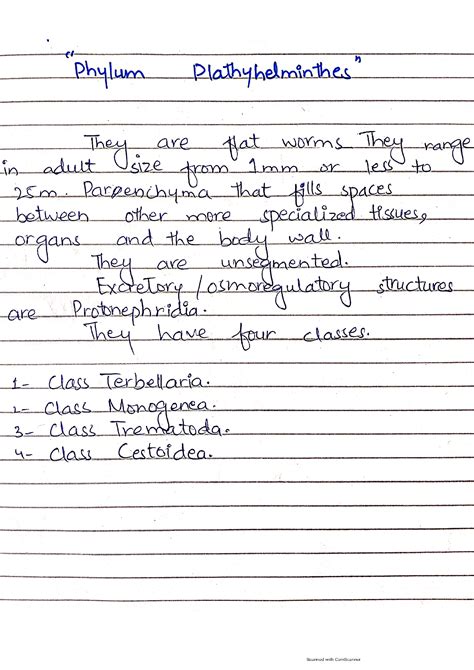 "Phylum Plathyhelminthes"
They are flat worms They range
in adult size from 1mm or less to
25m. Parenchyma that fills spaces
between other more specialized tissues,
organs and the body wall.
They are unsegmented.
Excretory /osmoregulatory structures
are Protonephridia.
They have four classes.
1- Class Terbellaria.
2- Class Monogenea.
3- Class Trematoda.
4- Class Cestoidea.
Scanned with CamScanner